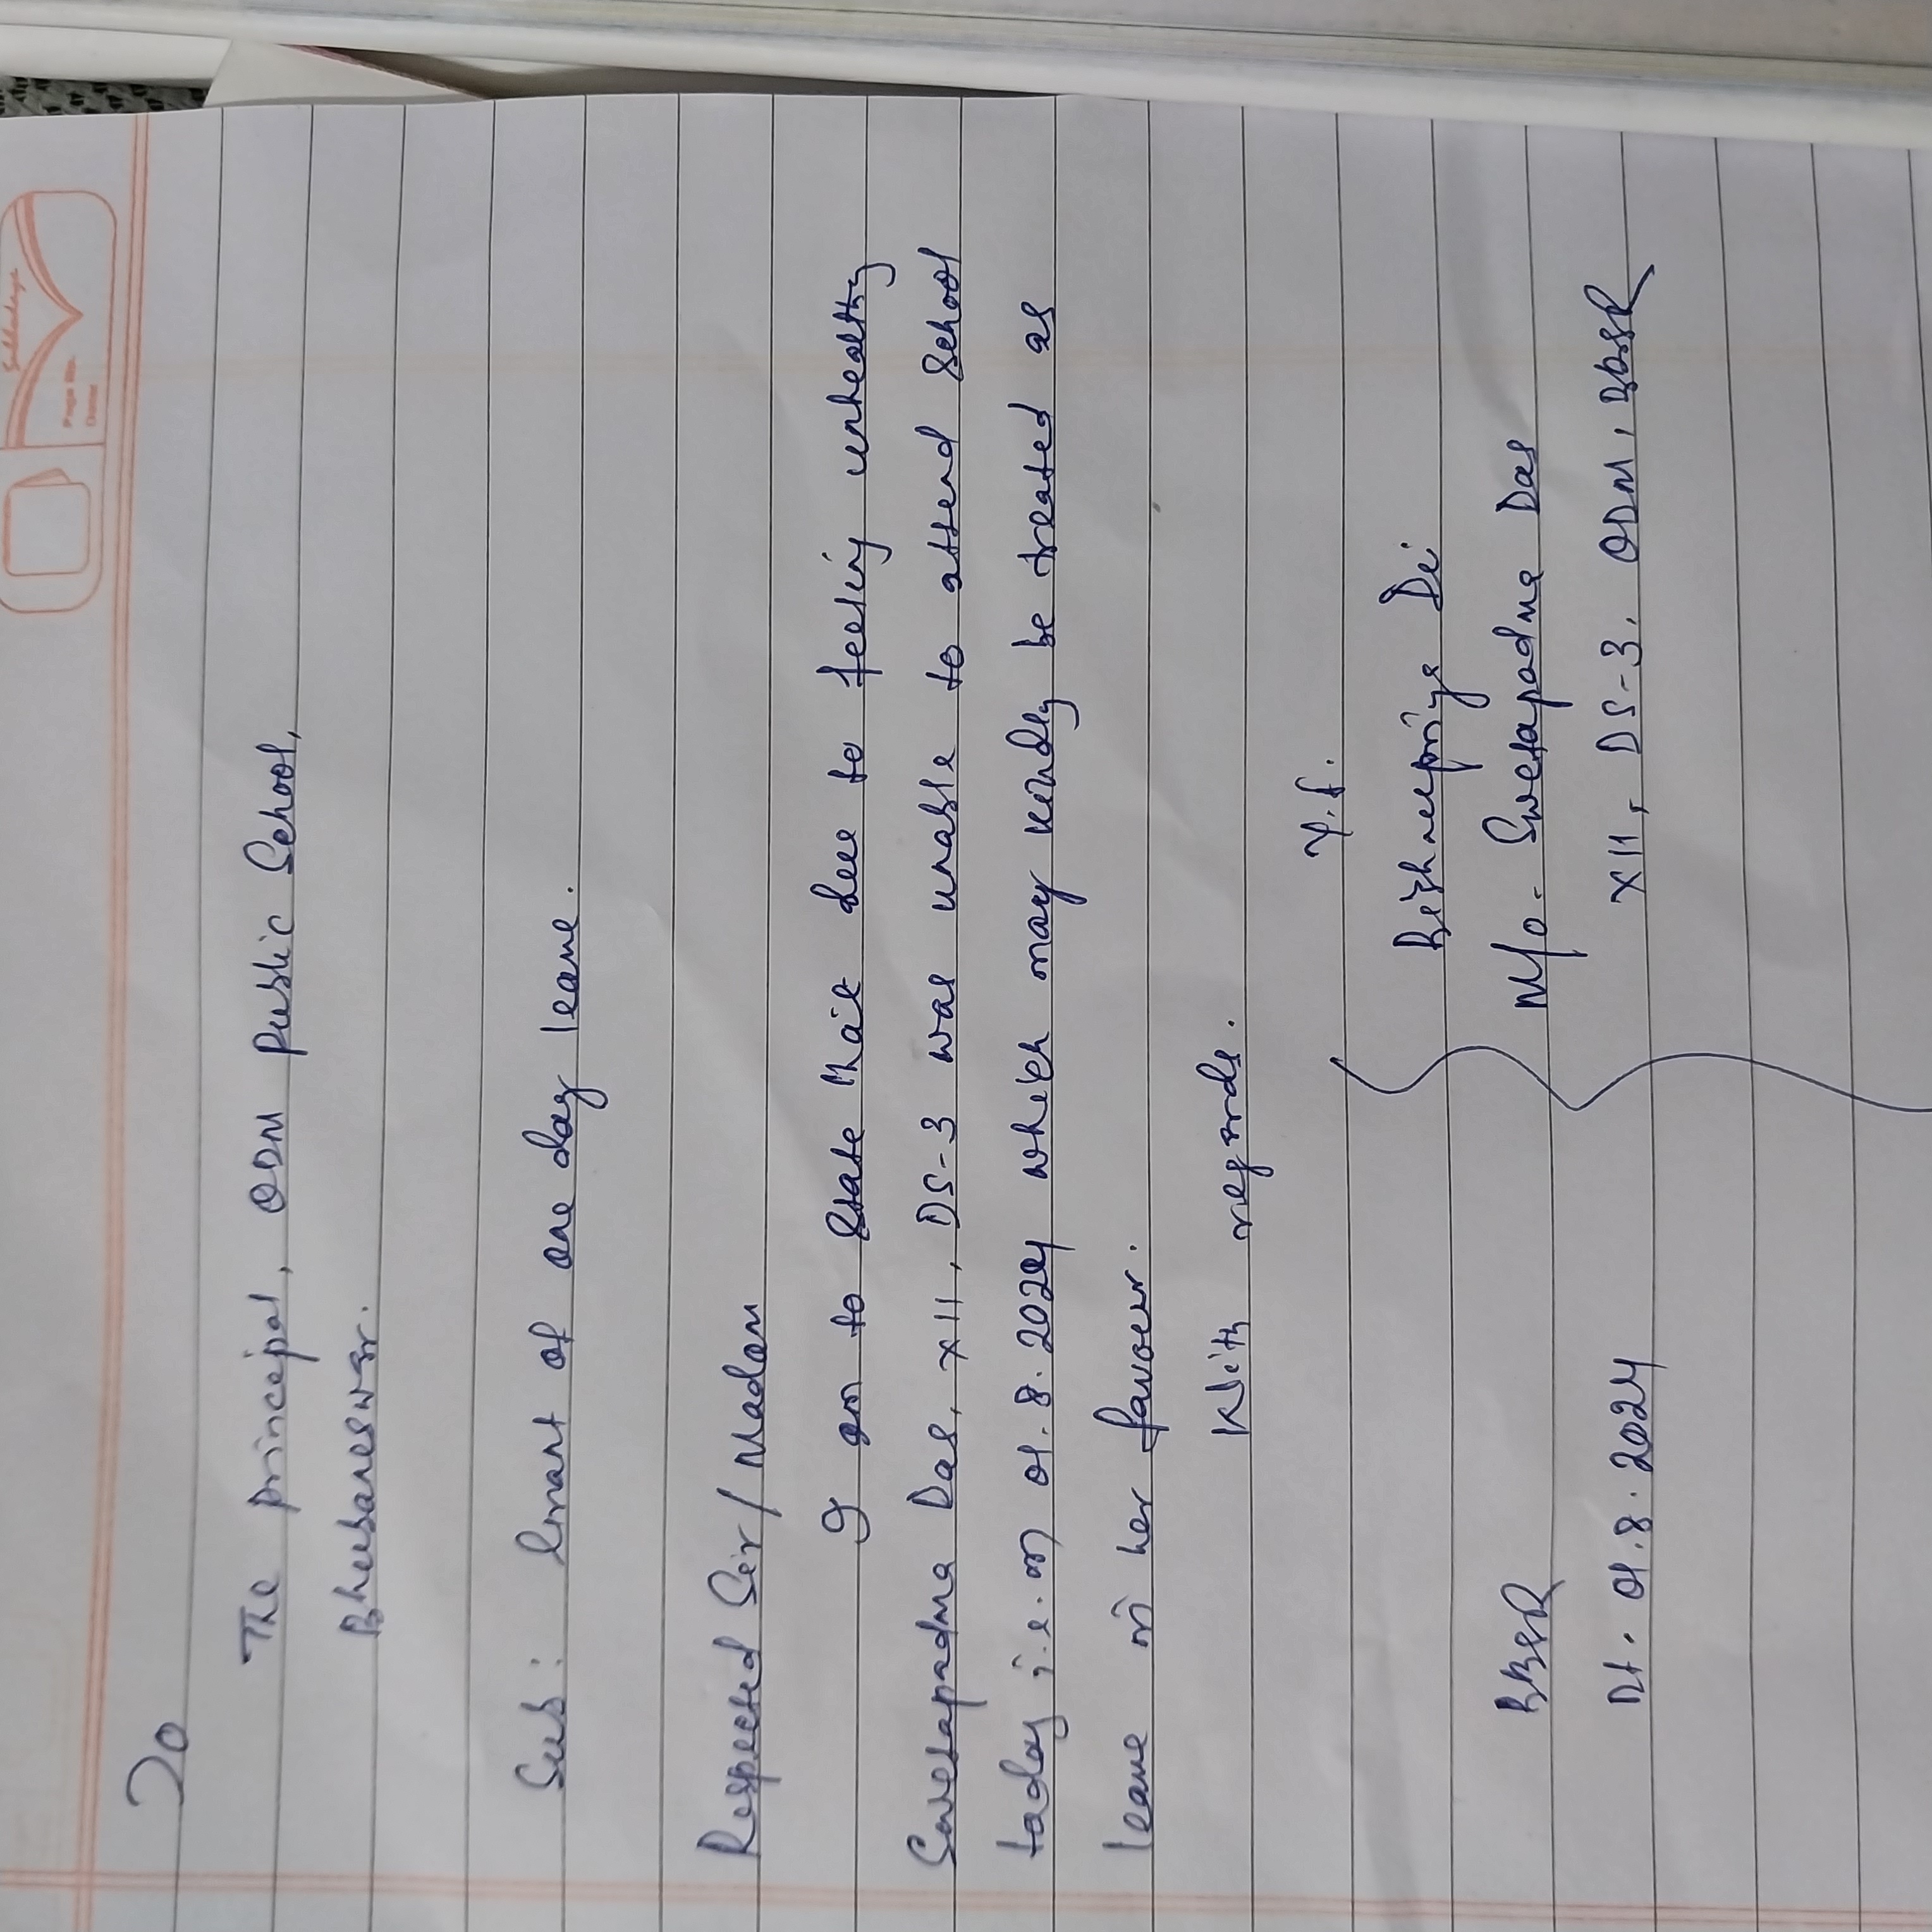 To
The principal, ODM public School,
Bhubaneswar.
Sub: Grant of one day leave.
Respected Sir/Madam
I am to state that due to feeling unhealthy
Swetapadma Das, XII, DS-3 was unable to attend school
today i.e. on 01.8.2024 which may kindly be treated as
leave in her favour.
With regards.
Y.f.
Bishnupriya Dei
BBSR
M/o. Swetapadma Das
Dt. 01.8.2024
XII, DS-3, ODM, BBSR